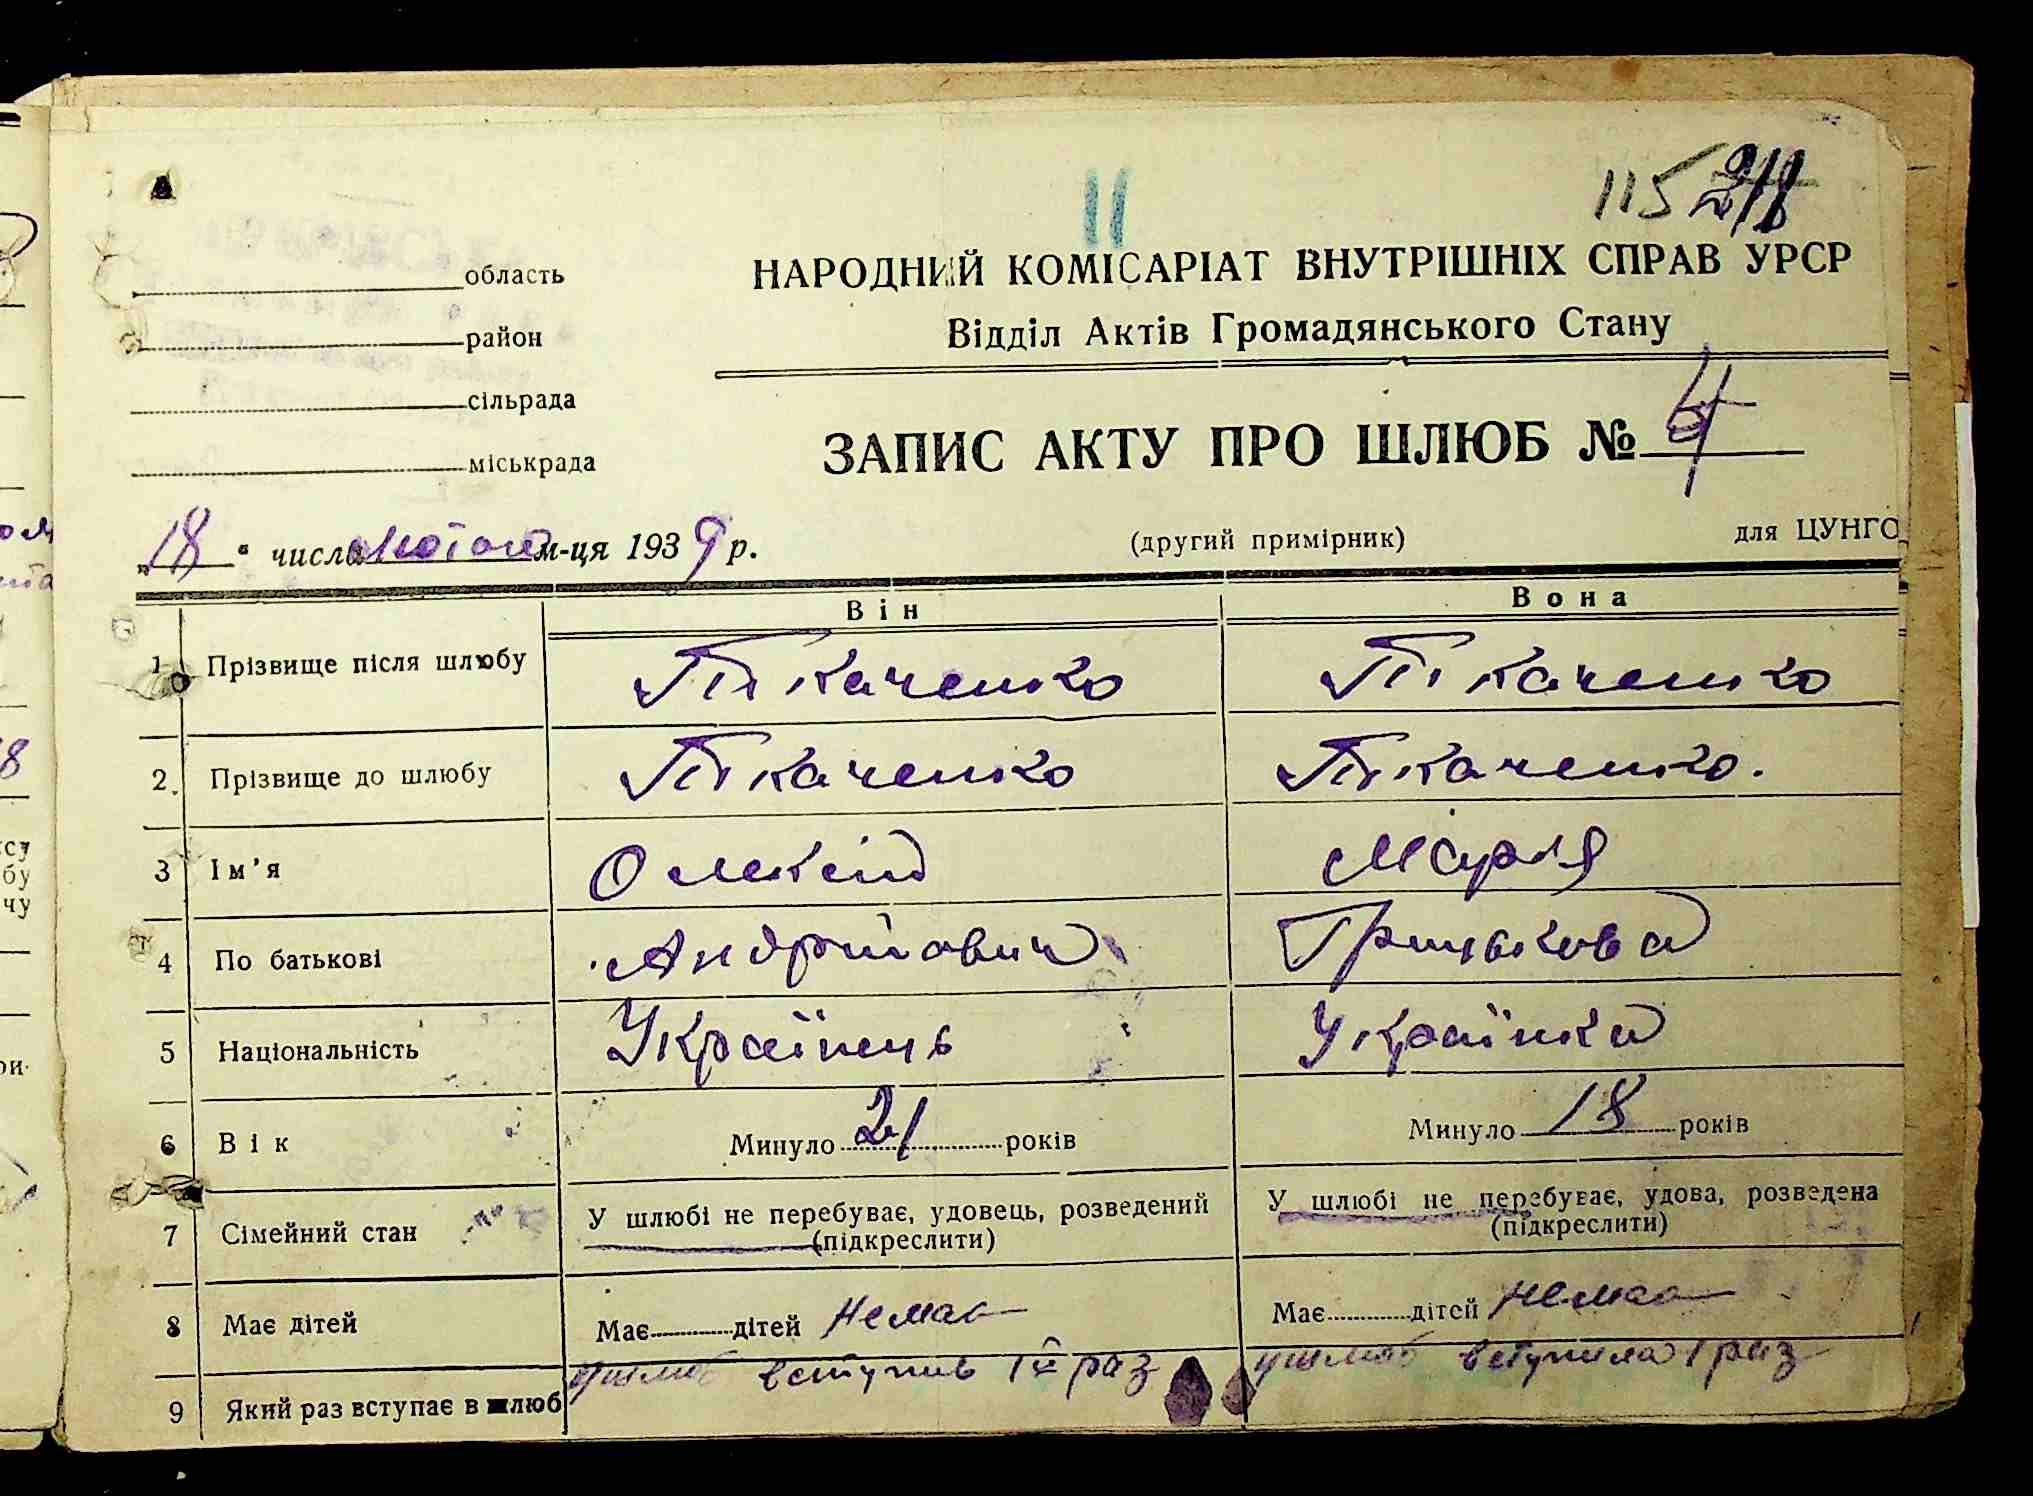 11
115 218
область
район
сільрада
міськрада
НАРОДНИЙ КОМІСАРІАТ ВНУТРІШНІХ СПРАВ УРСР
Відділ Актів Громадянського Стану
ЗАПИС АКТУ ПРО ШЛЮБ № 4
„18“ числа лютого м-ця 1939 р.
(другий примірник)
для ЦУНГО
Він
Вона
1 Прізвище після шлюбу Ткаченко Ткаченко
2. Прізвище до шлюбу Ткаченко Ткаченко.
3 Ім'я Олексій Марія
4 По батькові Андрійович Грицькова
5 Національність Українець Українка
6 Вік Минуло 21 років Минуло 18 років
7 Сімейний стан У шлюбі не перебуває, удовець, розведений (підкреслити) У шлюбі не перебуває, удова, розведена (підкреслити)
8 Має дітей Має дітей немає Має дітей немає
9 Який раз вступає в шлюб у шлюб вступив 1й раз у шлюб вступила 1 раз